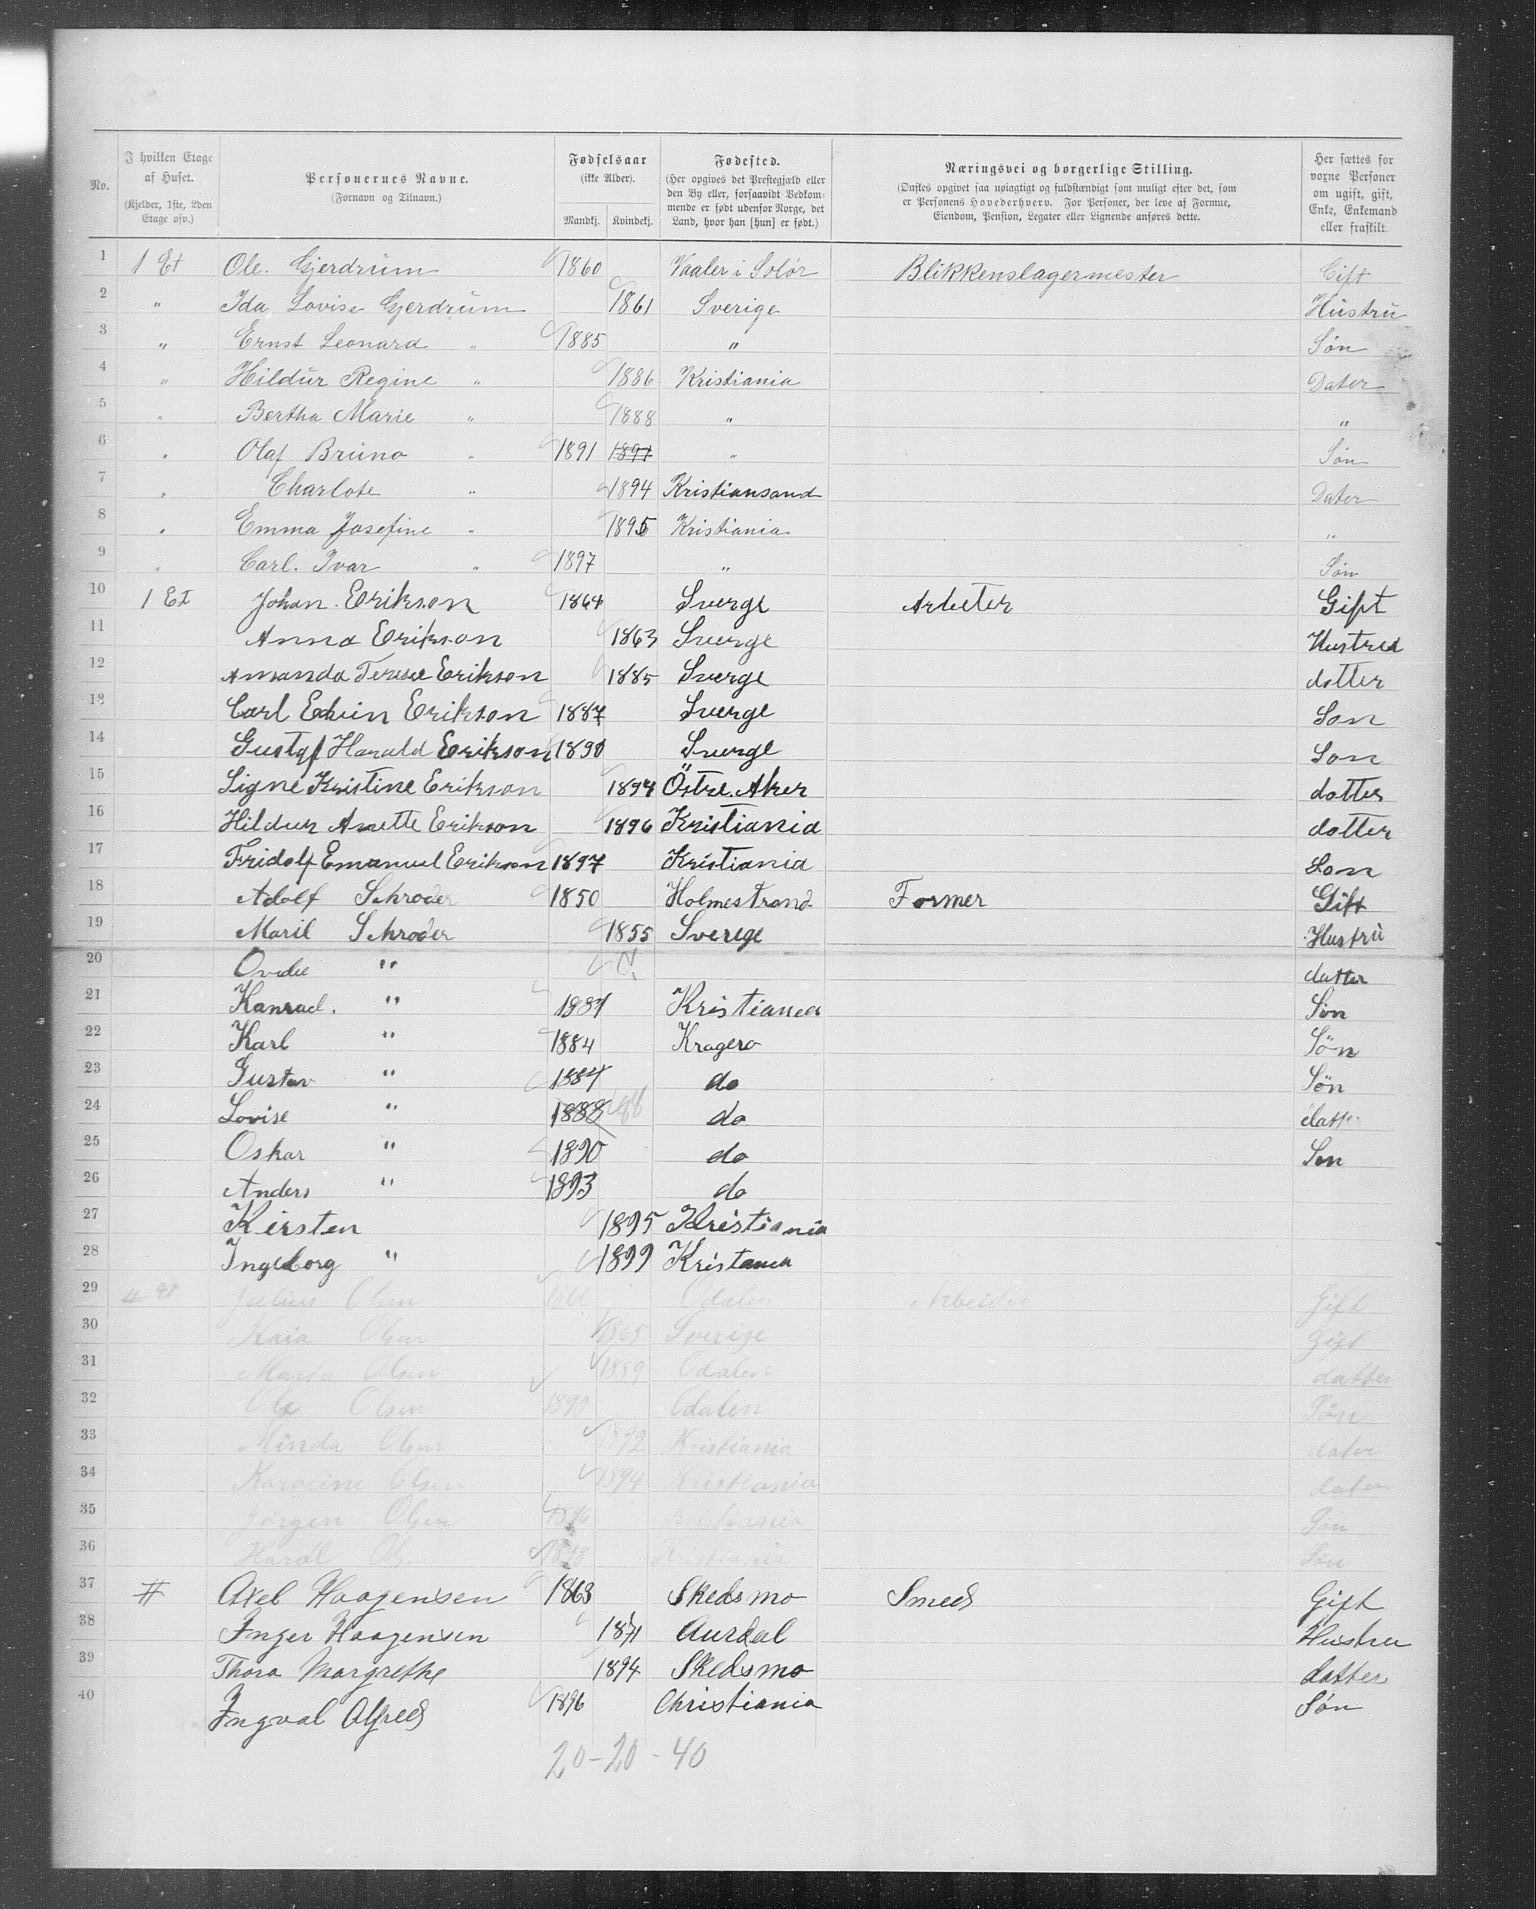 No. | I hvilken Etage af Huset. (Kjelder, 1ste, 2den Etage osv.) | Personernes Navne. (Fornavn og Tilnavn.) | Fødselsaar (ikke Alder). Mandkj. | Kvindekj. | Fødested. (Her opgives det Prestegjæld eller den By eller, forsaavidt Vedkommende er født udenfor Norge, det Land, hvor han [hun] er født.) | Næringsvei og borgerlige Stilling. (Ønskes opgivet saa nøiagtigt og fuldstændigt som muligt efter det, som er Personens Hovederhverv. For Personer, der leve af Formue, Eiendom, Pension, Legater eller Lignende anføres dette.) | Her sættes for vorne Personer om ugift, gift, Enke, Enkemand eller fraskilt.
1 1 Et Ole. Gjerdrum 1860 Vaaler i Solør Blikkenslagermester Gift
2 " Ida Lovise Gjerdrum 1861 Sverige Hustru
3 " Ernst Leonard " 1885 " Søn
4 " Hildur Regine " 1886 Kristiania Dater
5 " Bertha Marie " 1888 " "
6 " Olaf Bruno " 1891 1891 " Søn
7 " Charlote " 1894 Kristiansand Dater
8 " Emma Josefine " 1895 Kristiania "
9 " Carl. Ivar " 1897 " Søn
10 1 Et Johan. Erikson 1864 Sverge Arbeter Gift
11 Anna Erikson 1863 Sverge Hustred
12 Amanda Terese Erikson 1885 Sverge dotter
13 Carl Edvin Erikson 1887 Sverge Son
14 Gustaf Harald Erikson 1890 Sverge Son
15 Signe Kristine Erikson 1894 Östre. Aker dotter
16 Hildur Anette Erikson 1896 Kristiania dotter
17 Fridolf Emanuel Erikson 1897 Kristiania Son
18 Adolf Schroder 1850 Holmestrand Former Gift
19 Maril Schrøder 1855 Sverege Hustru
20 " datter
21 Kanrad. " Kristiania Søn
22 Karl " 1884 Kragero Søn
23 Gustav " 1884 do Søn
24 Lovise " 1888 88 do datter
25 Oskar " 1890 do Søn
26 Anders " 1893 do
27 Kirsten 1895 Kristiania
28 Ingeborg " 1899 Kristania
29 Julius Olsen Odalen Arbeider Gift
30 Kaia Olsen 1865 Sverige Gift
31 Marta Olsen 1889 Odalen datter
32 Olsen Odalen Søn
33 Minda Olsen 1892 Kristiania dater
34 Karoline Olsen 1894 Kristiania daten
35 Jørgen Olsen 1896 Kristiania Søn
36 Harald Olsen 1898 Kristiania Søn
37 Axel Haagensen 1863 Skedsmo Smed Gift
38 Inger Haagensen 1871 Aurdal Hustru
39 Thora Margrethe 1894 Skedsmo datter
40 Ingval Alfred 1896 Christiania Søn
20 - 20 - 40